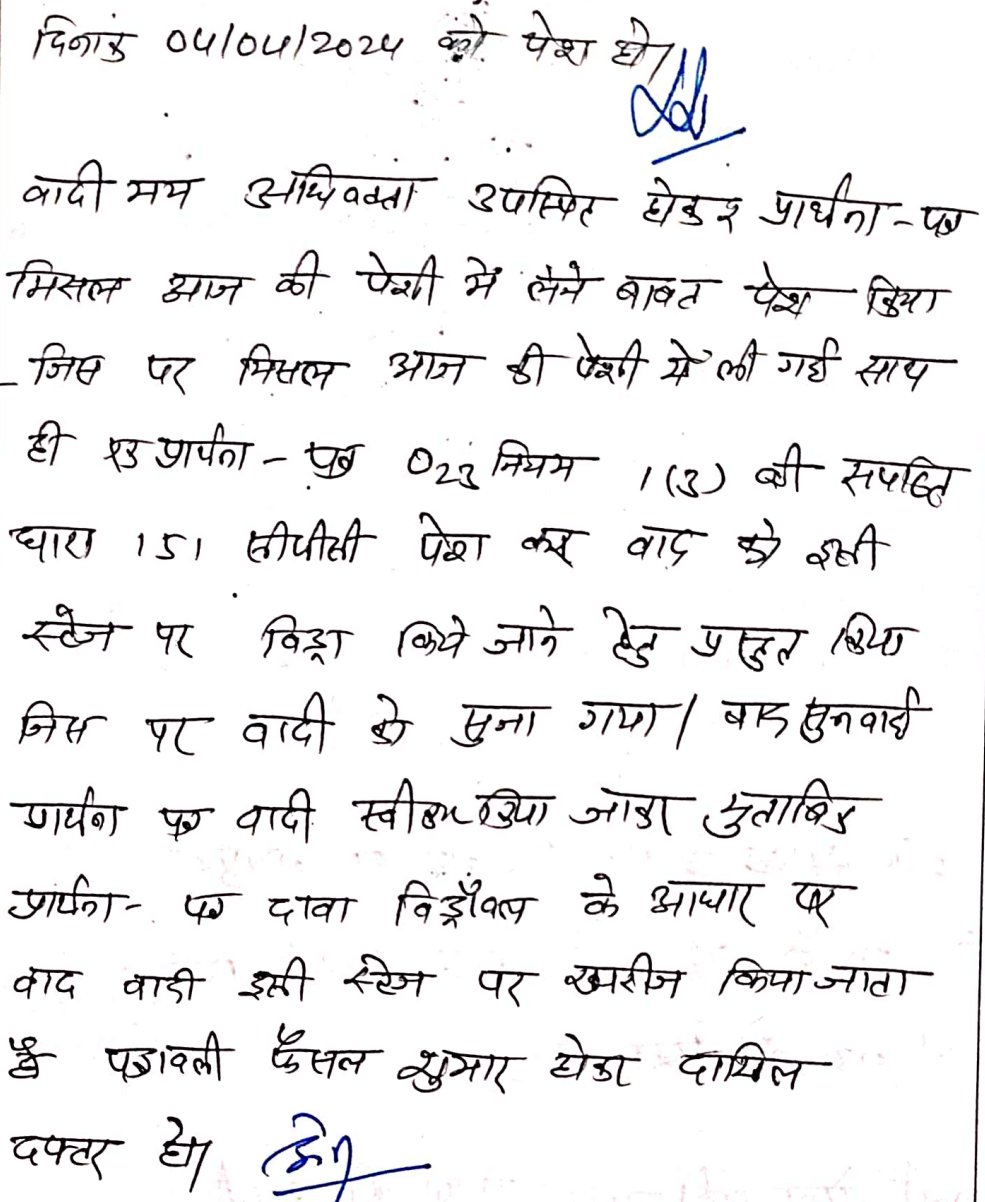 दिनांक 04/04/2024 को पेश हो।
वादी मय अधिवक्ता उपस्थित होकर प्रार्थना-पत्र
मिसल आज की पेशी में लेने बाबत पेश किया
जिस पर मिसल आज की पेशी में ली गई साथ
ही एक प्रार्थना-पत्र O23 नियम 1(3) की सपठित
धारा 151 सीपीसी पेश कर वाद को इसी
स्टेज पर विड्रा किये जाने हेतु प्रस्तुत किया
जिस पर वादी को सुना गया। बाद सुनवाई
प्रार्थना पत्र वादी स्वीकार किया जाकर मुताबिक
प्रार्थना-पत्र दावा विड्रॉवल के आधार पर
वाद वादी इसी स्टेज पर खारीज किया जाता
है पत्रावली फैसल शुमार होकर दाखिल
दफ्तर हो।